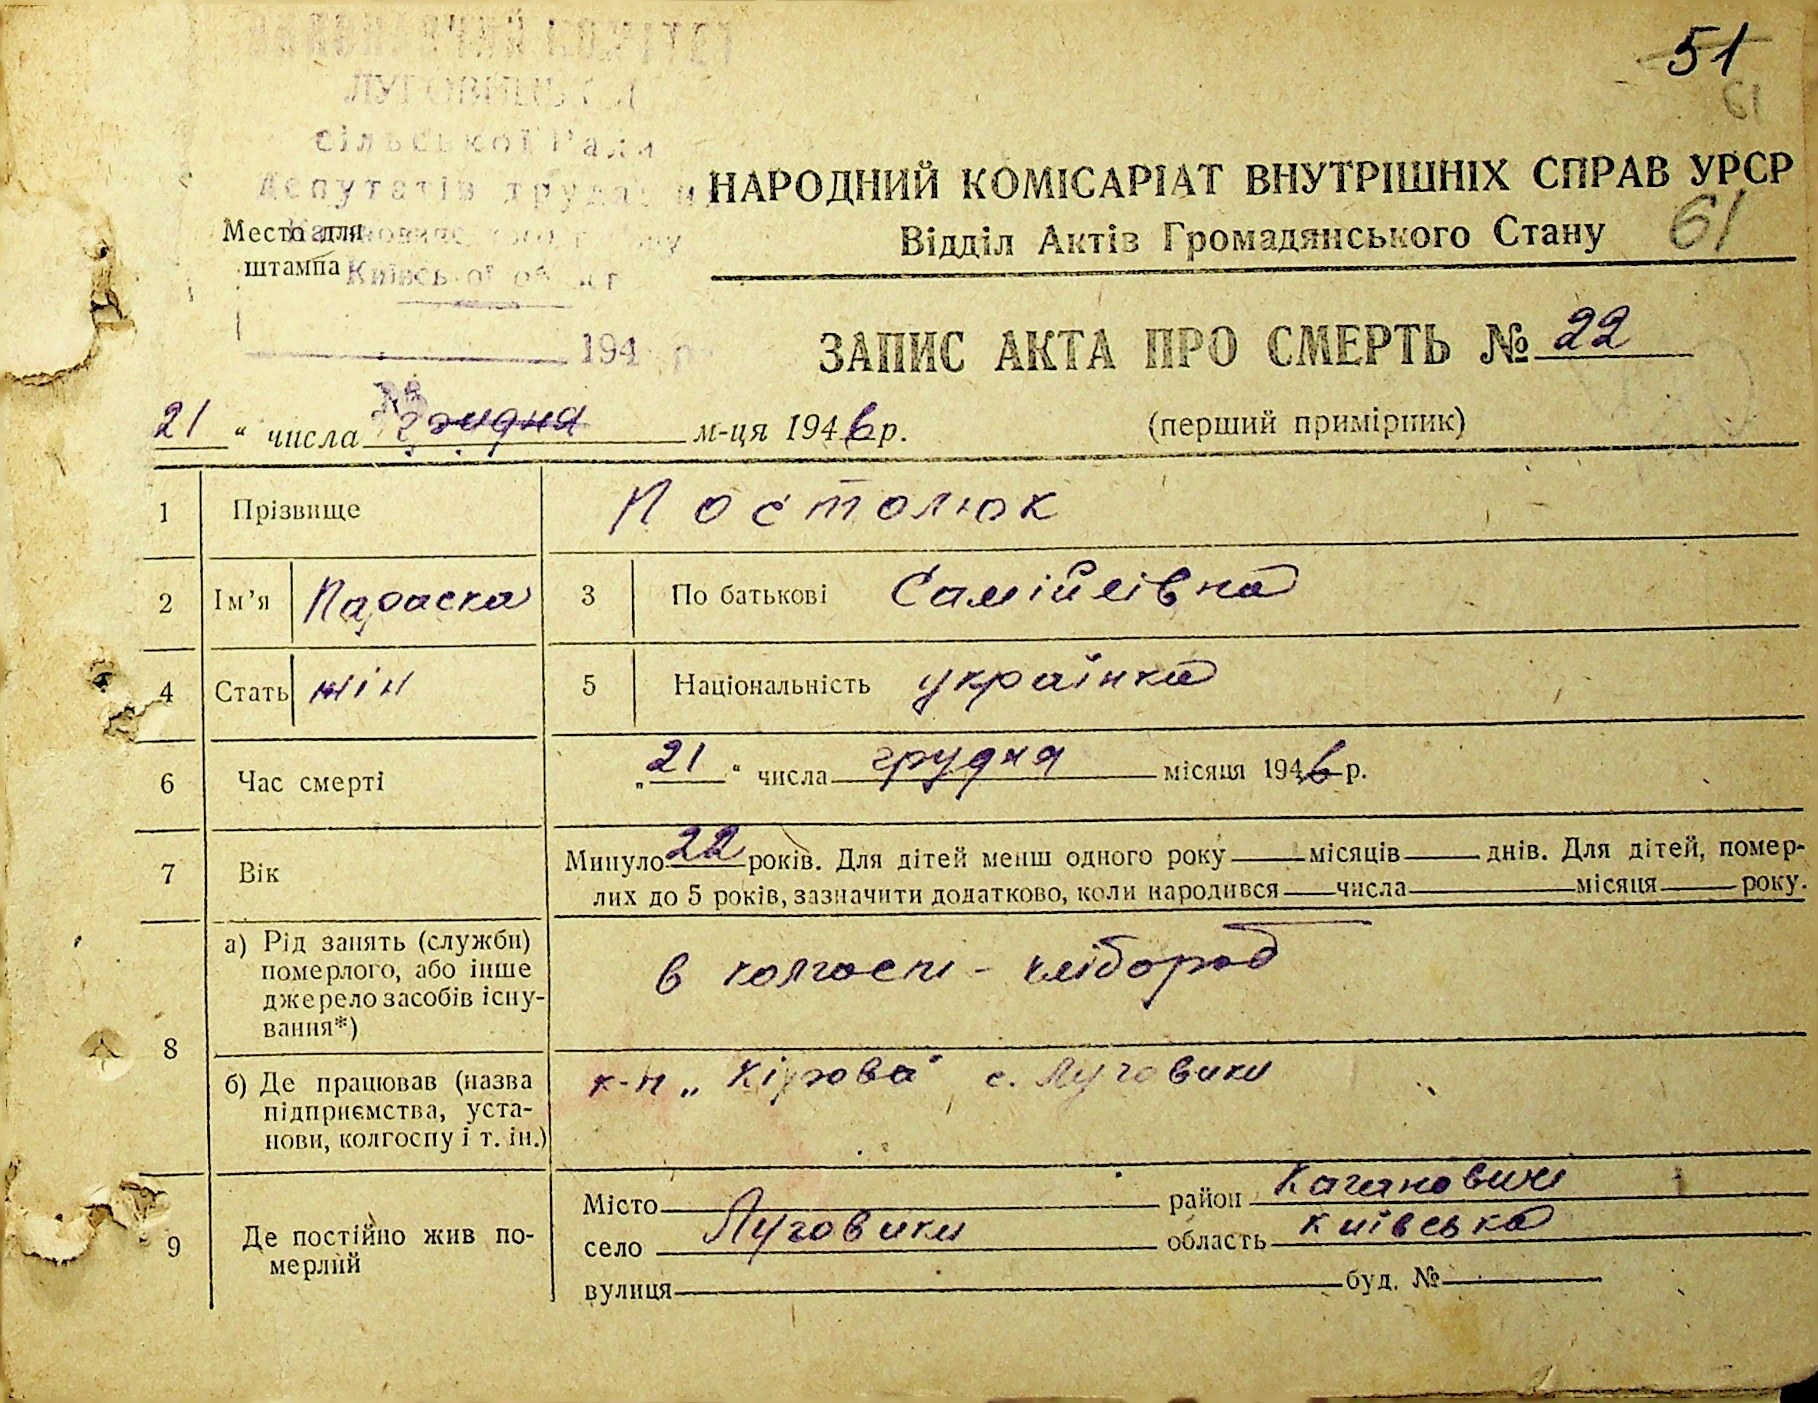 51
61
сільської Ради
депутатів трудящих
НАРОДНИЙ КОМІСАРІАТ ВНУТРІШНІХ СПРАВ УРСР
Відділ Актів Громадянського Стану
61
Место для
штампа
194 р.
ЗАПИС АКТА ПРО СМЕРТЬ № 22
21 " числа грудня м-ця 1946 р.
(перший примірник)
1 Прізвище Постолюк
2 Ім'я Параска 3 По батькові Самійлівна
4 Стать жін 5 Національність українка
6 Час смерті „21" числа грудня місяця 1946 р.
7 Вік Минуло 22 років. Для дітей менш одного року місяців днів. Для дітей, помер-
лих до 5 років, зазначити додатково, коли народився числа місяця року.
8 а) Рід занять (служби)
померлого, або інше
джерело засобів існу-
вання*)
в колгоспі - хлібороб
б) Де працював (назва
підприємства, уста-
нови, колгоспу і т. ін.)
к-п „Кірова" с. Луговики
9 Де постійно жив по-
мерлий
Місто район Кагановичі
село Луговики область Київська
вулиця буд. №